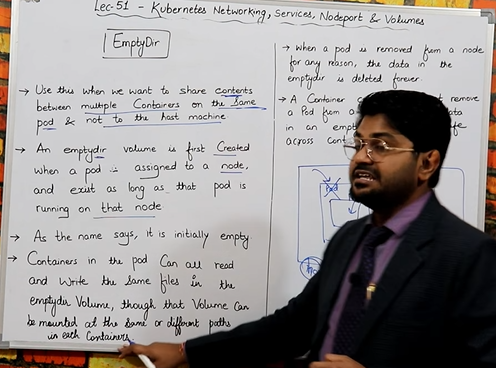 Lec-51 - Kubernetes Networking, Services, Nodeport & Volumes
EmptyDir
→ Use this when we want to share contents
between multiple Containers on the same
pod & not to the host machine
→ An emptydir volume is first Created
when a pod is assigned to a node,
and exist as long as that pod is
running on that node
→ As the name says, it is initially empty
→ Containers in the pod Can all read
and write the same files in the
emptydir Volume, though that Volume Can
be mounted at the same or different paths
in each Containers.
→ when a pod is removed from a node
for any reason, the data in the
emptydir is deleted forever.
→ A Container remove
a Pod from a
in an
across
Pod